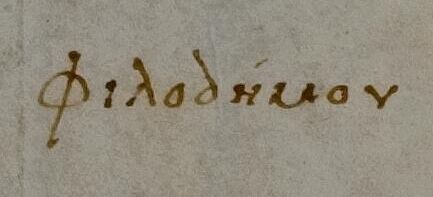 Φιλοδήμου